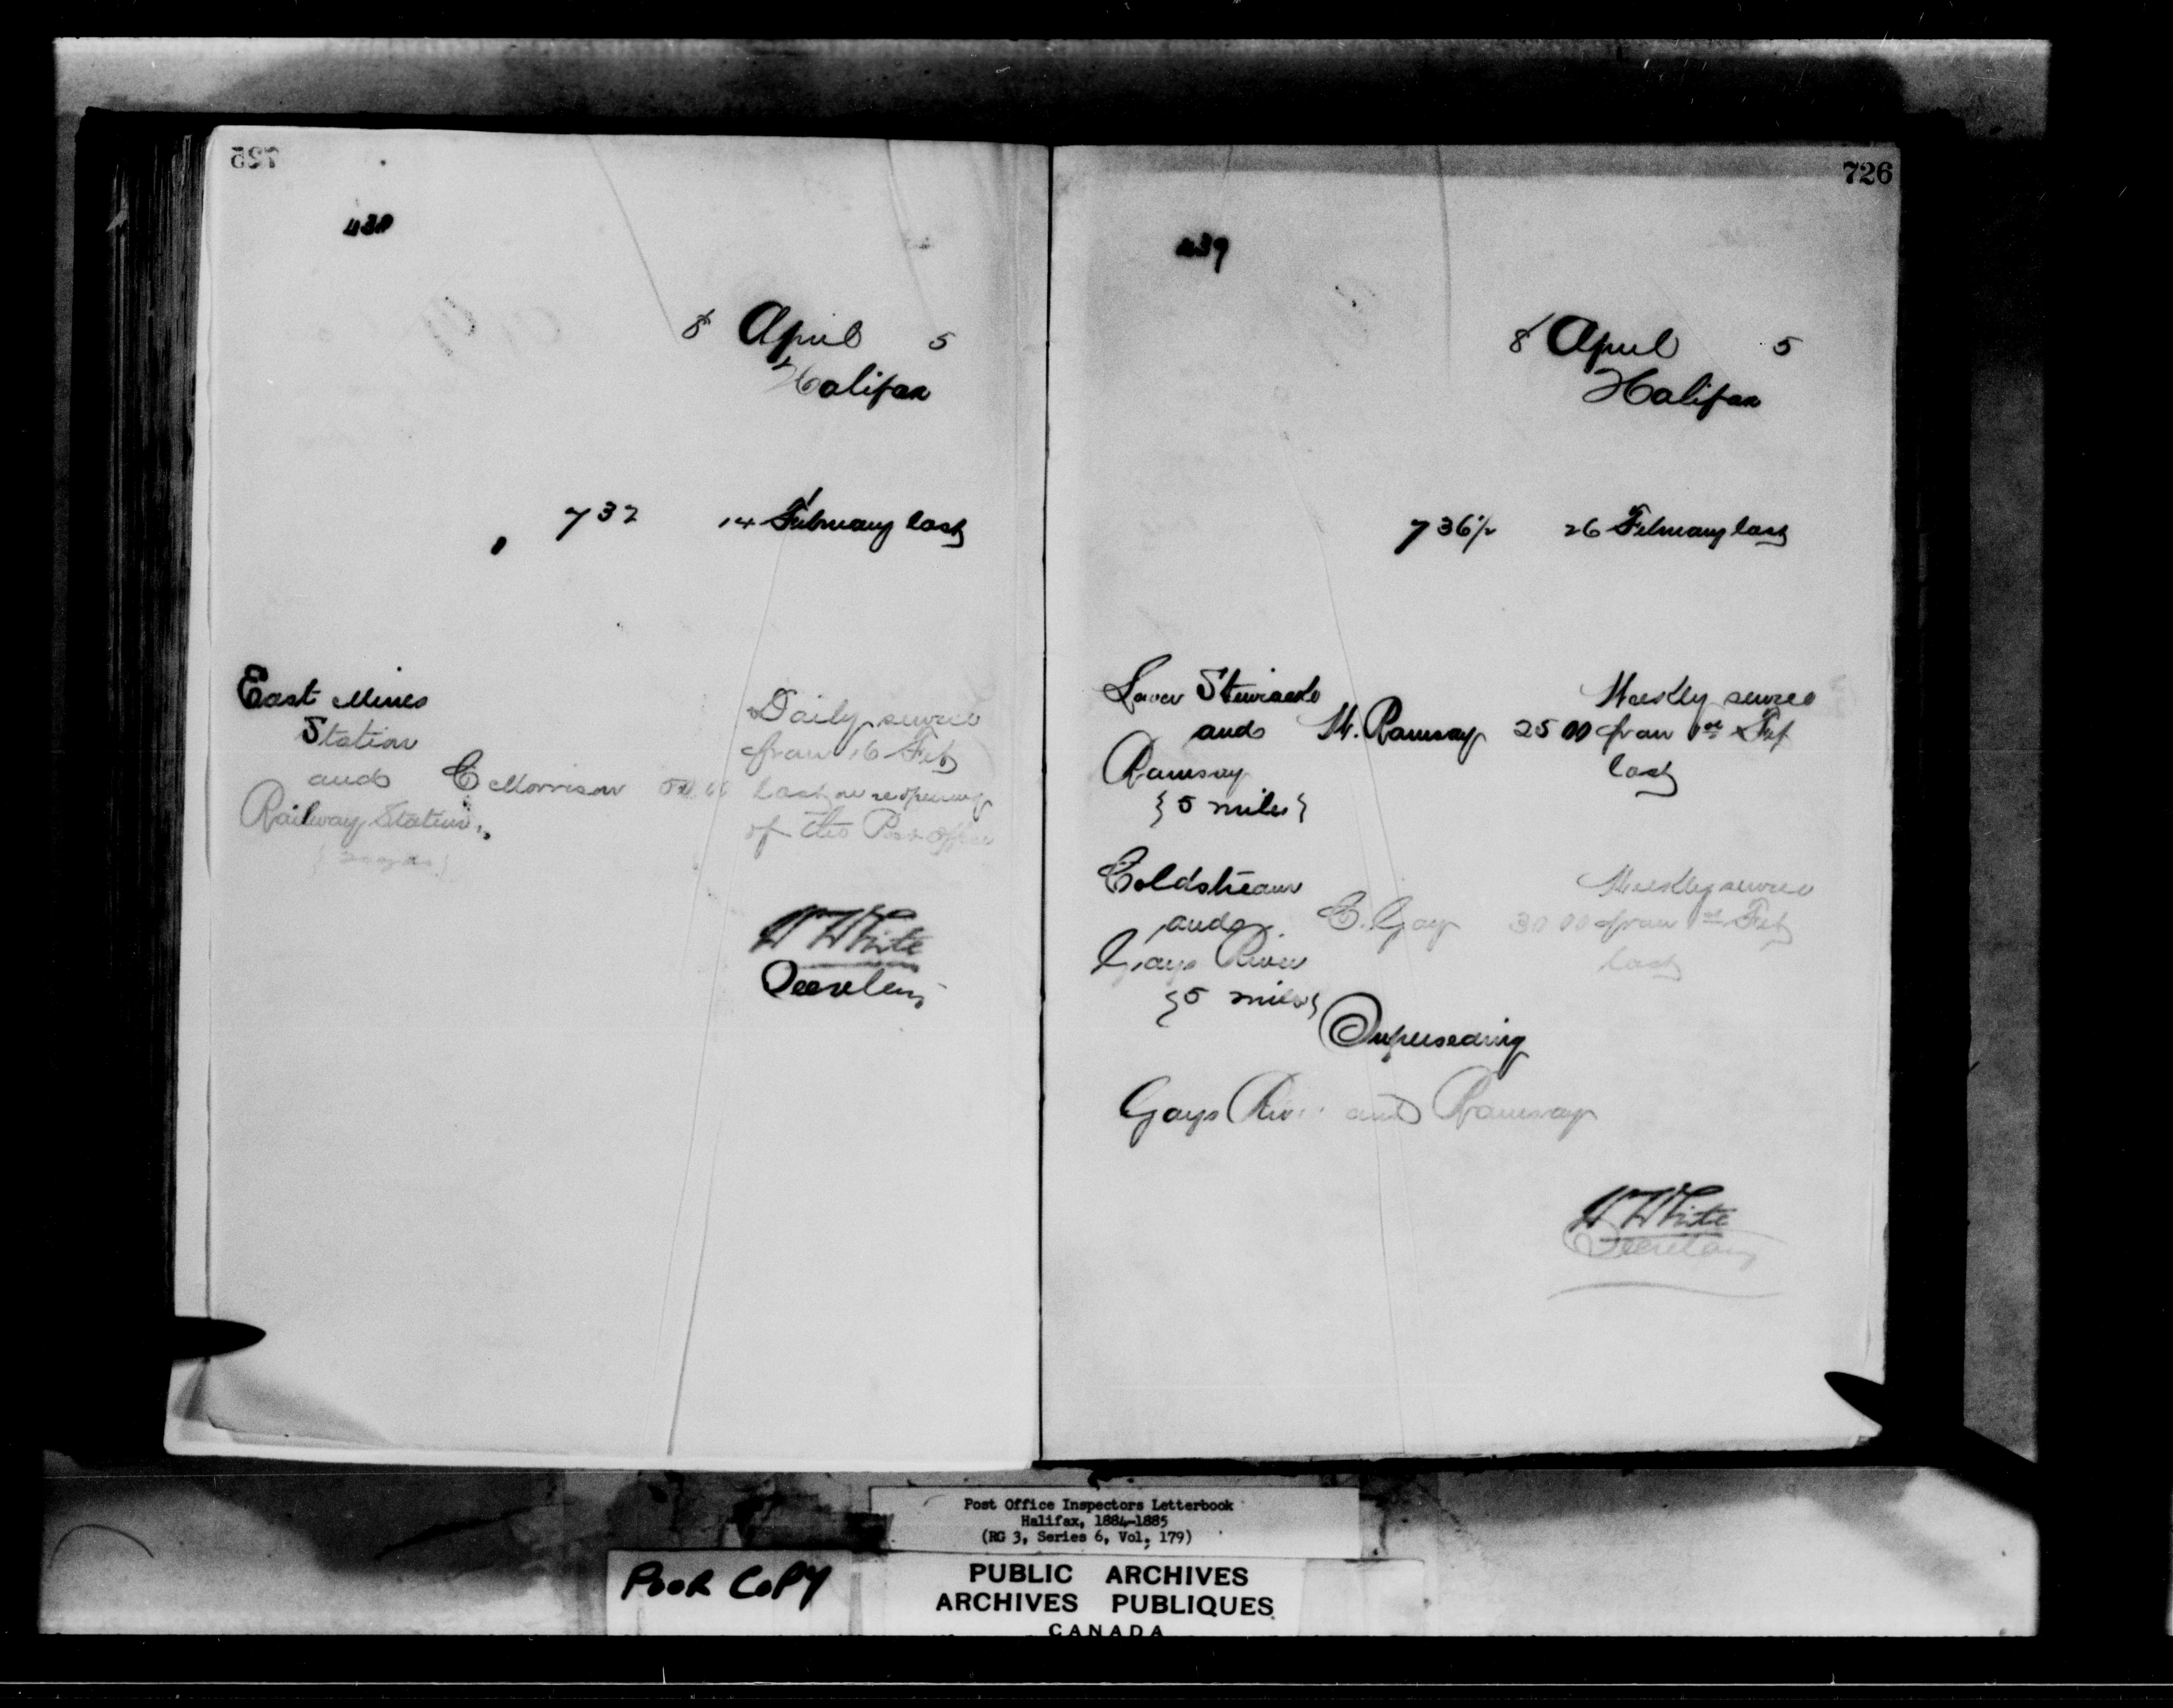 725
430
8 April 5
Halifax
732 14 February last
East Mines
Station
and C Morrison
Railway Station
Daily service
from 16 Feb
last on reopening
of the Post Office
W White
Secretary
726
439
8 April 5
Halifax
736½ 26 February last
Lower Stewiacke
and W. Ramsay 25 00
Ramsay
{5 miles}
Weekly service
from 1st Feb
last
Coldstream
and C. Gay 30 00
Gays River
{5 miles}
Weekly service
from 1st Feb
last
Superseding
Gays River and Ramsay
W White
Secretary
Post Office Inspectors Letterbook
Halifax, 1884-1885
(RG 3, Series 6, Vol. 179)
POOR COPY
PUBLIC ARCHIVES
ARCHIVES PUBLIQUES
CANADA